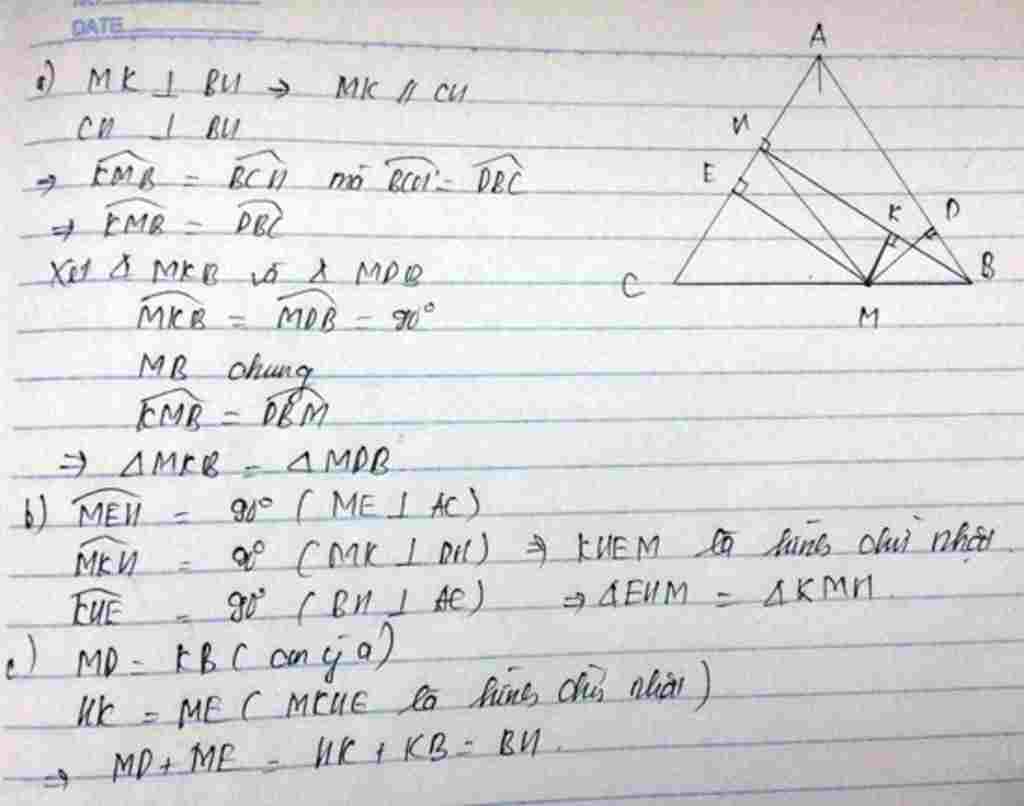 DATE
a) MK ⊥ BH → MK // CH
CH ⊥ BH
⇒ KMB = BCH mà BCH = DBC
⇒ KMB = DBC
Xét Δ MKB và Δ MDB
MKB = MDB = 90°
MB chung
KMB = DBM
⇒ ΔMKB = ΔMDB
b) MEH = 90° (ME ⊥ AC)
MKH = 90° (MK ⊥ BH) ⇒ KHEM là hình chữ nhật.
KHE = 90° (BH ⊥ AC) ⇒ ΔEHM = ΔKMH.
c) MD = KB (câu a)
HK = ME (MKHE là hình chữ nhật)
⇒ MD + ME = HK + KB = BH.
A
H
E
K
D
C
B
M